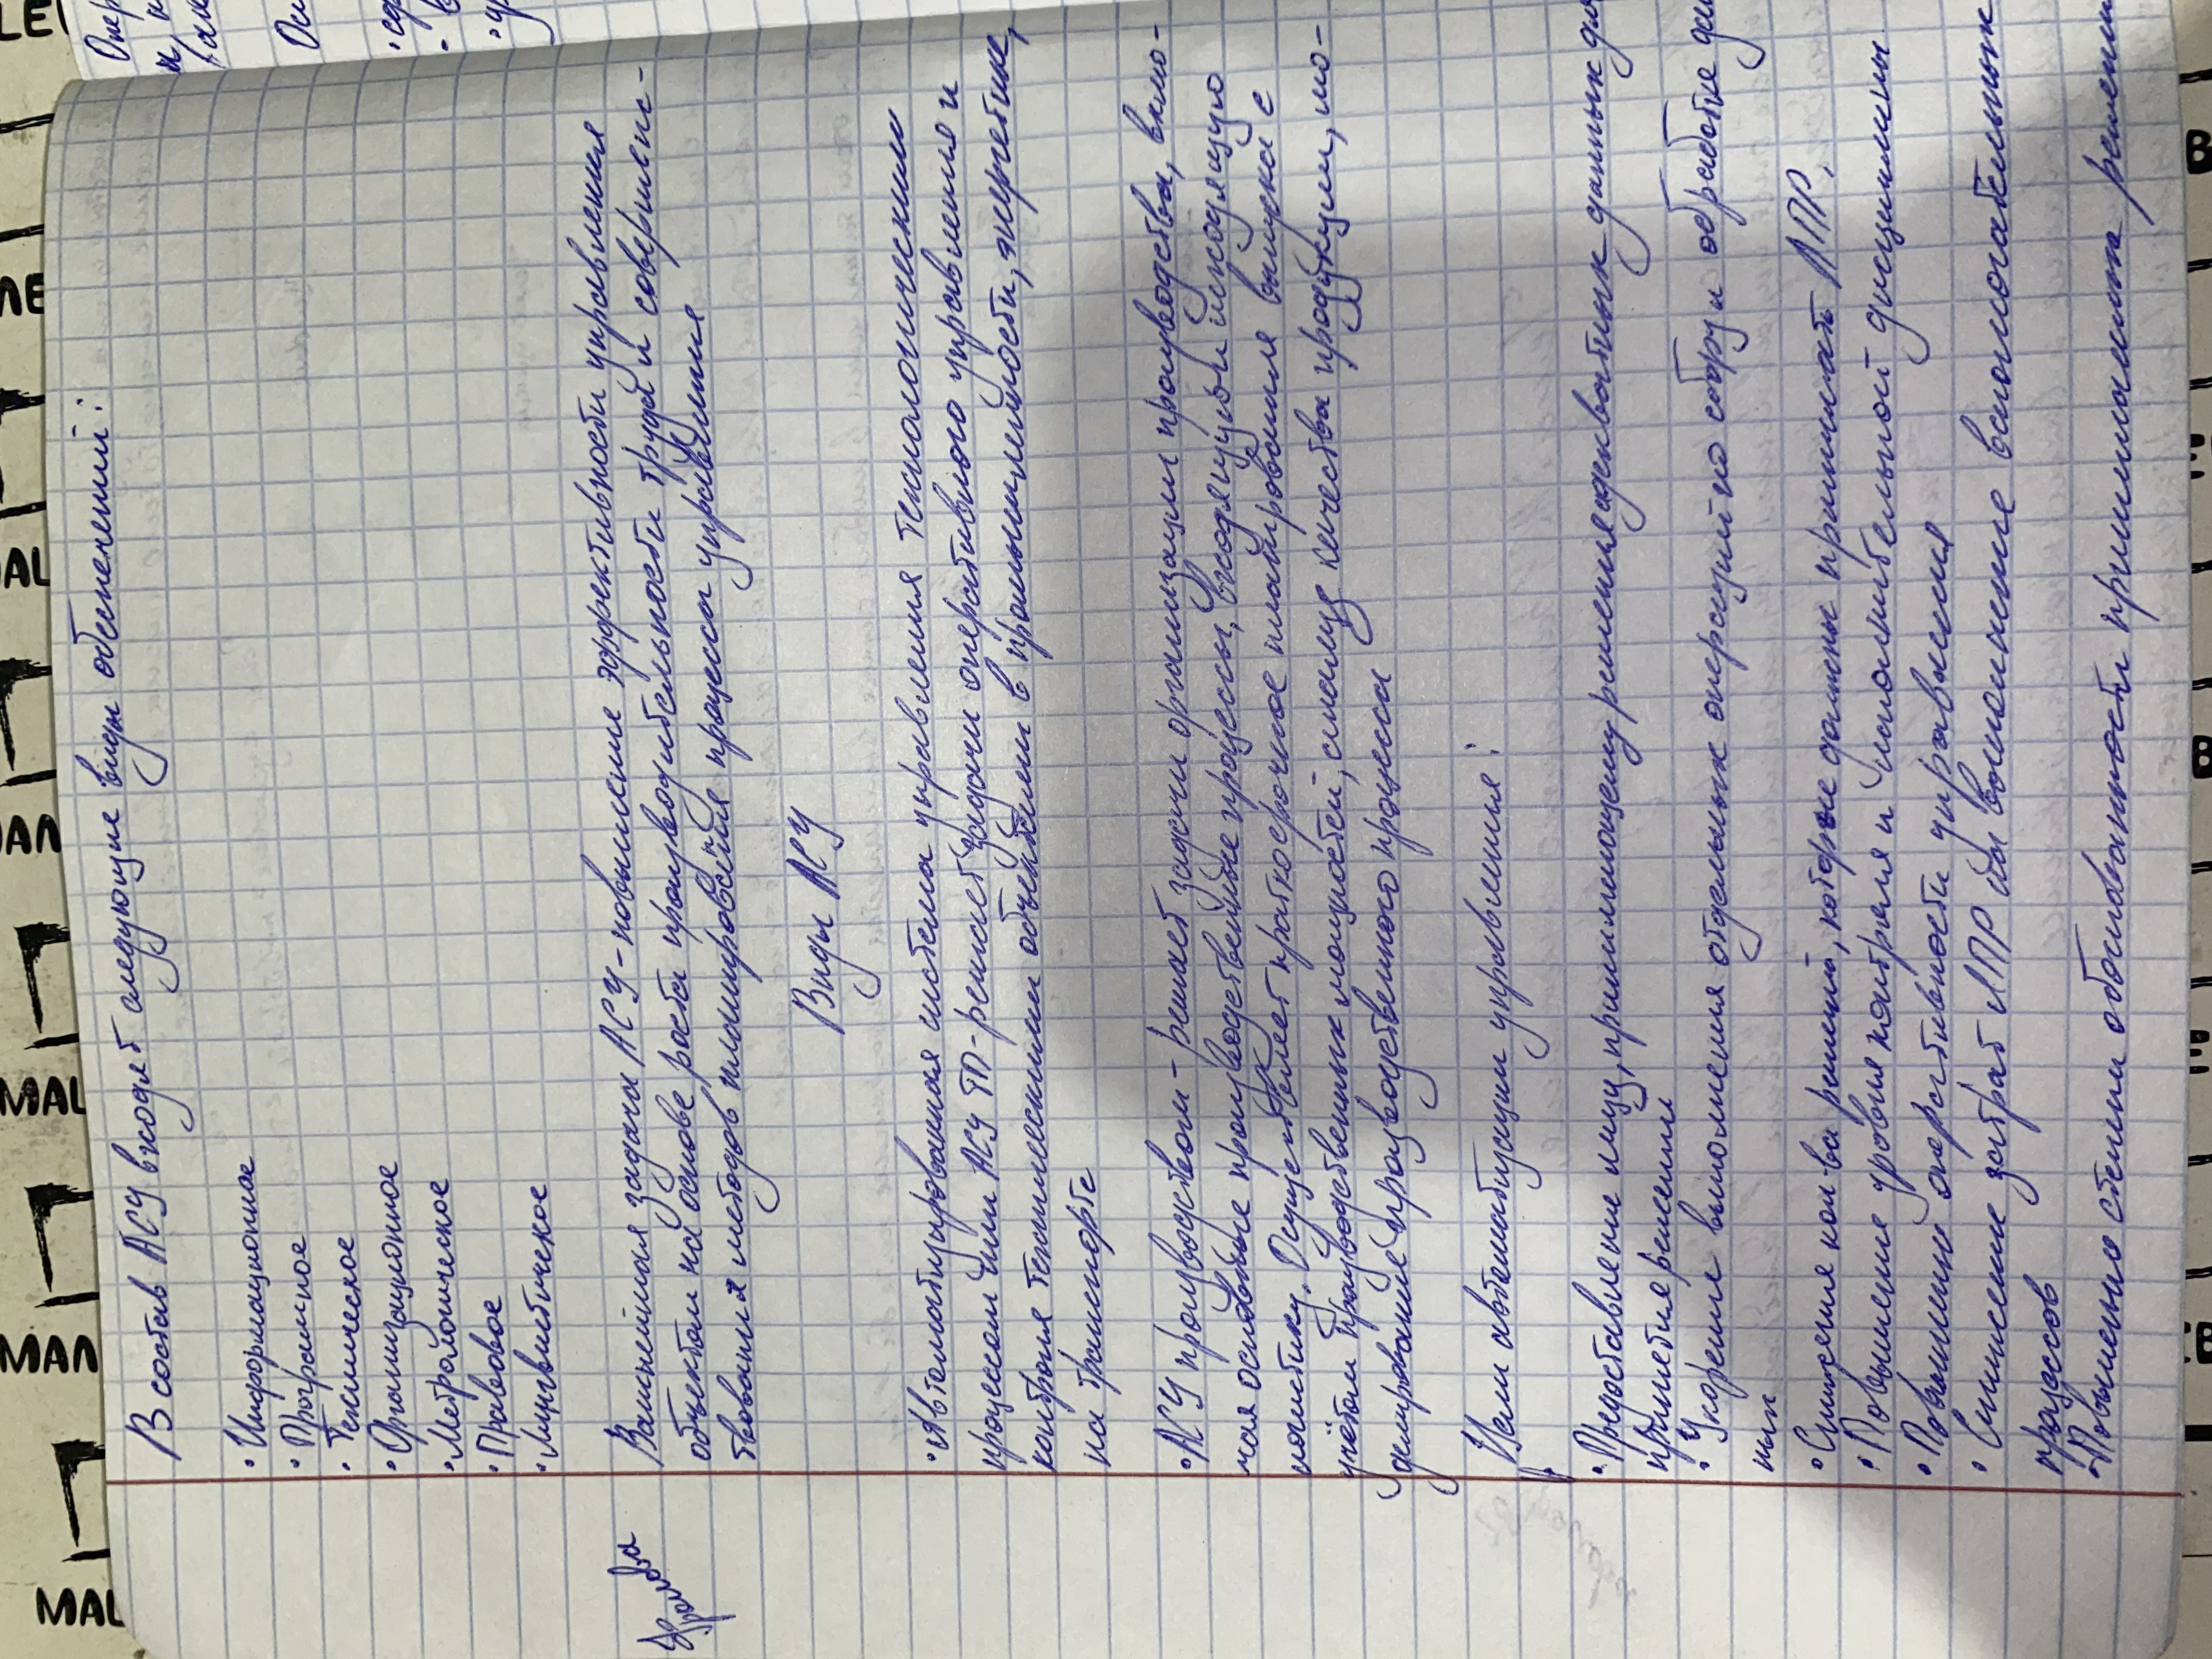 В состав АСУ входят следующие виды обеспечений:
• Информационное
• Програмное
• Техническое
• Организационное
• Метрологическое
• Правовое
• Лингвистическое
Важнейшая задача АСУ - повышение эффективности управления
объектом на основе роста производительности труда и совершенс-
твования методов планирования процесса управления
Виды АСУ
• Автоматизированная система управления технологическим
процессом или АСУ ТП - решает задачи оперативного управления и
контроля техническими объектами в промышленности, энергетике,
на транспорте
• АСУ производством - решает задачи организации производства, вклю-
чая основные производственные процессы, входящую и исходящую
логистику. Осуществляет краткосрочное планирование выпуска с
учётом производственных мощностей, анализ качества продукции, мо-
делирование производственного процесса
Цели автоматизации управления:
• Предоставление лицу, принимающему решения адекватных данных для
принятия решений
• Ускорение выполнения отдельных операций по сбору и обработке дан
ных
• Снижения кол-ва решений, которые должны принимать ЛПР.
• Повышение уровня контроля и исполнительной дисциплины
• Повышение оперативности управления
• Снижение затрат ЛПР на выполнение вспомогательных
процессов
• Повышение степени обоснованности принимаемых решени